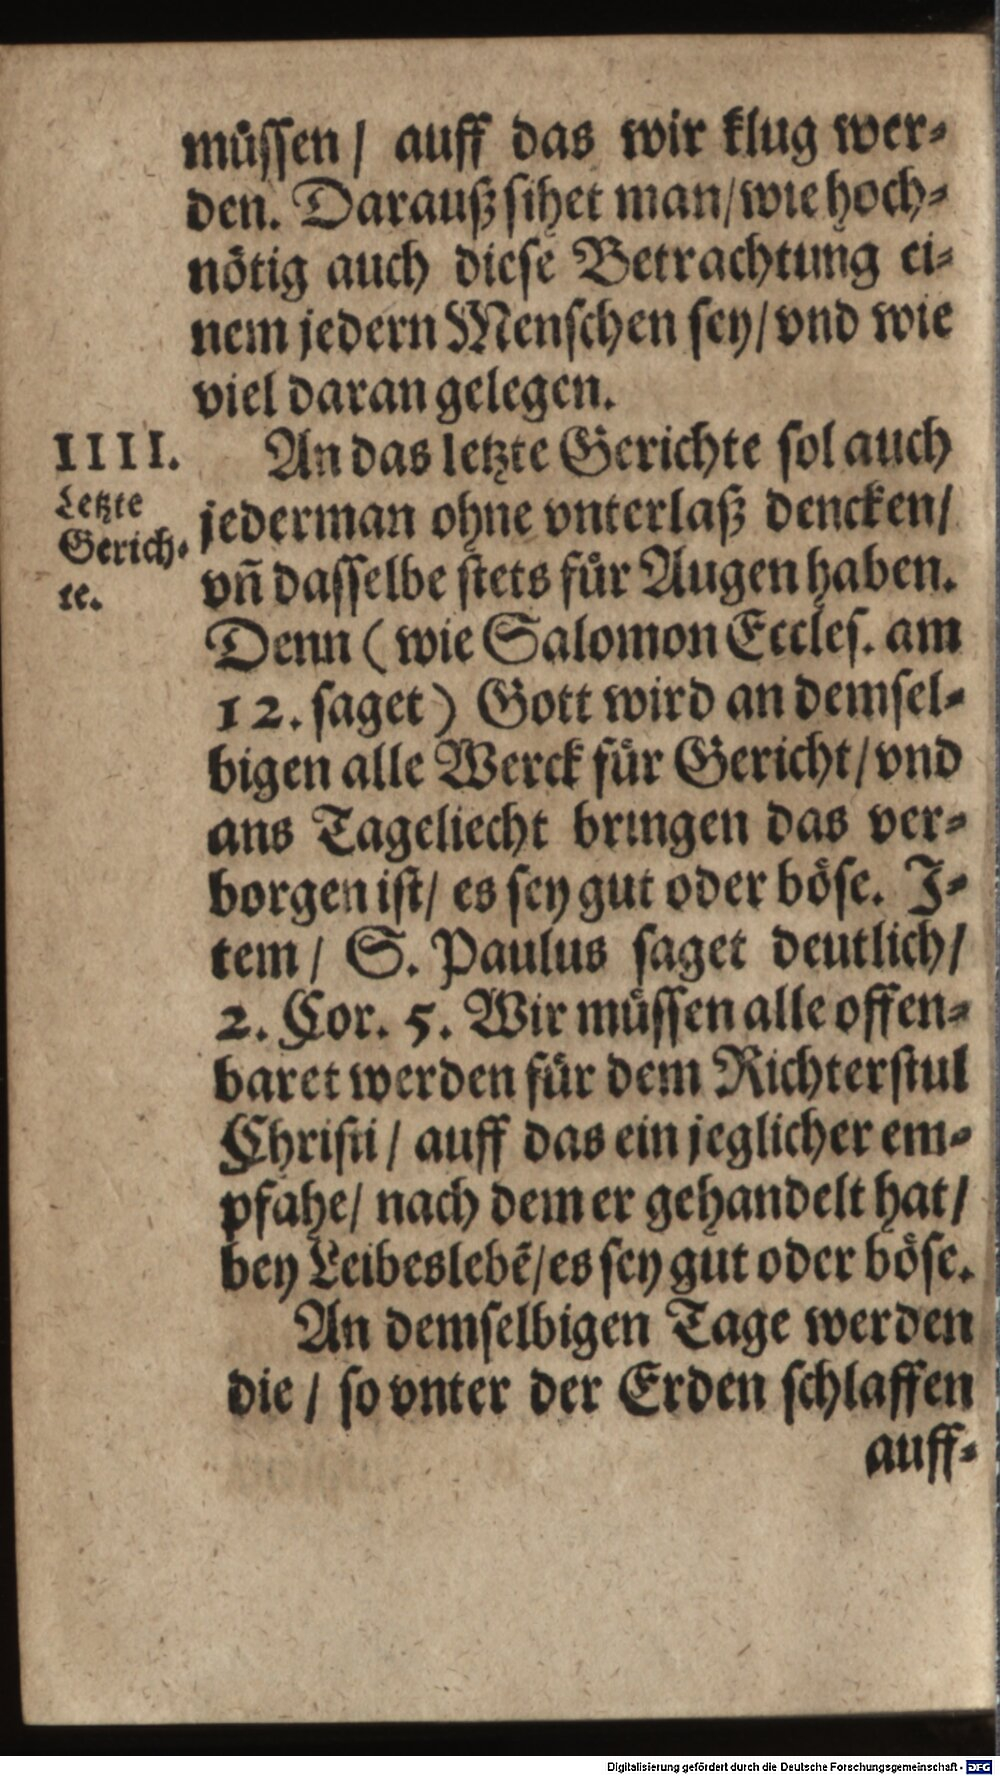 müssen / auff das wir klug wer-
den. Darauß sihet man/ wie hoch-
nötig auch diese Betrachtung ei-
nem jedern Menschen sey/ vnd wie
viel daran gelegen.
IIII.
Letzte
Gerich-
te.
An das letzte Gerichte sol auch
jederman ohne vnterlaß dencken/
vñ dasselbe stets für Augen haben.
Denn ( wie Salomon Eccles. am
12. saget ) Gott wird an demsel-
bigen alle Werck für Gericht/ vnd
ans Tageliecht bringen das ver-
borgen ist/ es sey gut oder böse. J-
tem / S. Paulus saget deutlich/
2. Cor. 5. Wir müssen alle offen-
baret werden für dem Richterstul
Christi / auff das ein jeglicher em-
pfahe/ nach dem er gehandelt hat/
bey Leibeslebẽ/ es sey gut oder böse.
An demselbigen Tage werden
die / so vnter der Erden schlaffen
auff-
Digitalisierung gefördert durch die Deutsche Forschungsgemeinschaft - DFG